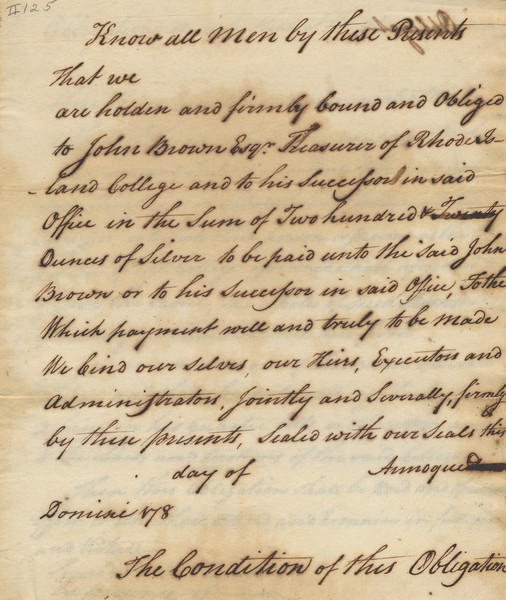 II 125
Know all Men by these Presents
That we
are holden and firmly bound and Obliged
to John Brown Esqr. Treasurer of Rhode Is-
-land College and to his Successor in said
Office in the Sum of Two hundred & Twenty
Ounces of Silver to be paid unto the said John
Brown or to his Successor in said Office, To the
Which payment well and truly to be made
We bind our selves, our Heirs, Executors and
Administrators, Jointly and Severally, firmly
by these presents, Sealed with our Seals this
day of Annoque
Domini 178
The Condition of this Obligation